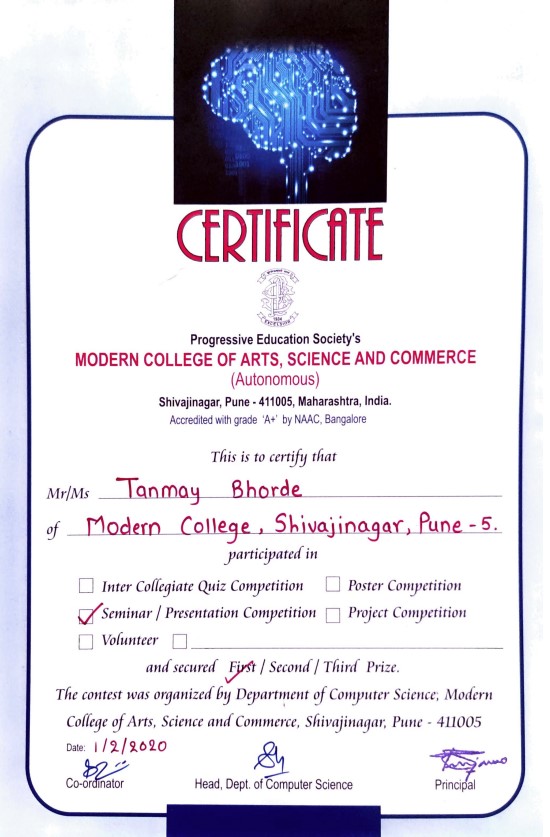 CERTIFICATE
1934
EXCELSIOR
Progressive Education Society's
MODERN COLLEGE OF ARTS, SCIENCE AND COMMERCE
(Autonomous)
Shivajinagar, Pune - 411005, Maharashtra, India.
Accredited with grade 'A+' by NAAC, Bangalore
This is to certify that
Mr/Ms Tanmay Bhorde
of Modern College, Shivajinagar, Pune - 5.
participated in
Inter Collegiate Quiz Competition Poster Competition
Seminar / Presentation Competition Project Competition
Volunteer
and secured First / Second / Third Prize.
The contest was organized by Department of Computer Science, Modern
College of Arts, Science and Commerce, Shivajinagar, Pune - 411005
Date: 1/2/2020
Co-ordinator Head, Dept. of Computer Science Principal